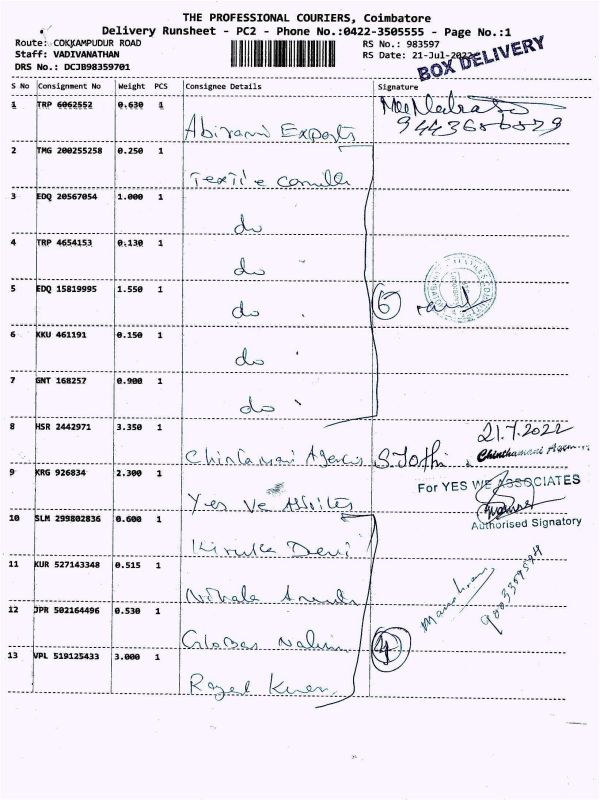 THE PROFESSIONAL COURIERS, Coimbatore
Delivery Runsheet - PC2 - Phone No.:0422-3505555 - Page No.:1
Route: COKKAMPUDUR ROAD
Staff: VADIVANATHAN
DRS No.: DCJB98359701
RS No.: 983597
RS Date: 21-Jul-2022
BOX DELIVERY
S No Consignment No Weight PCS Consignee Details Signature
1 TRP 6062552 0.630 1
Abirami Exports
2 TMG 200255258 0.250 1
3 EDQ 20567054 1.000 1
do
4 TRP 4654153 0.130 1
do
5 EDQ 15819995 1.550 1
do
6 KKU 461191 0.150 1
do
7 GNT 168257 0.900 1
do
8 HSR 2442971 3.350 1
21.7.2022
Chintamani Agencies S. Jothi
Chinthamani Agencies
9 KRG 926834 2.300 1
For YES WE ASSOCIATES
Yes We
Authorised Signatory
10 SLM 299802836 0.600 1
Devi
11 KUR 527143348 0.515 1
12 JPR 502164496 0.530 1
4
13 VPL 519125433 3.000 1